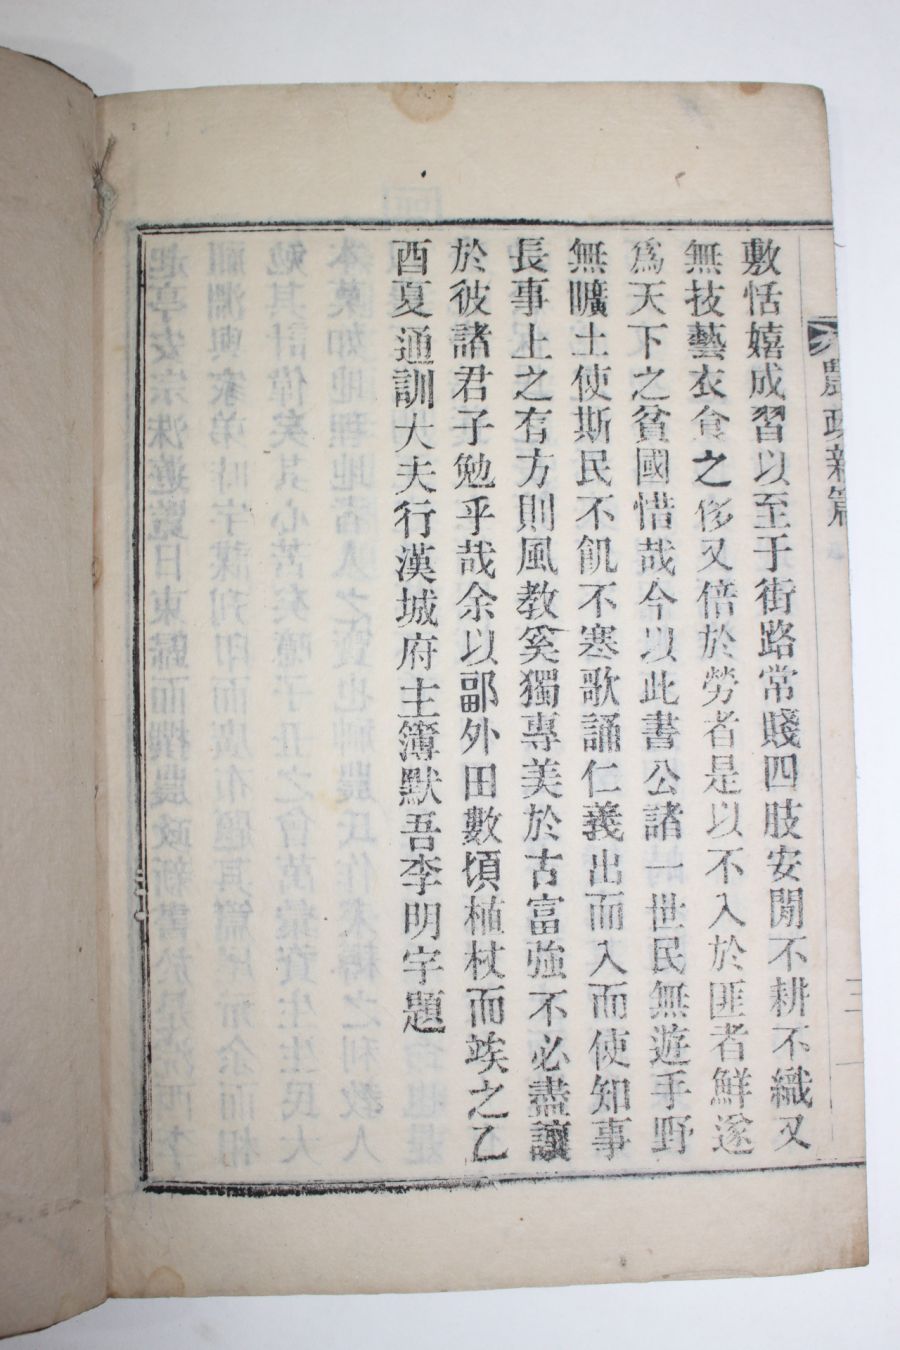 農政新篇
三
敷恬嬉成習以至于街路常賤四肢安閒不耕不織又
無技藝衣食之侈又倍於勞者是以不入於匪者鮮遂
爲天下之貧國惜哉今以此書公諸一世民無遊手野
無曠土使斯民不飢不寒歌誦仁義出而入而使知事
長事上之有方則風教奚獨專美於古富強不必盡讓
於彼諸君子勉乎哉余以郭外田數頃植杖而竢之乙
酉夏通訓大夫行漢城府主簿默吾李明宇題